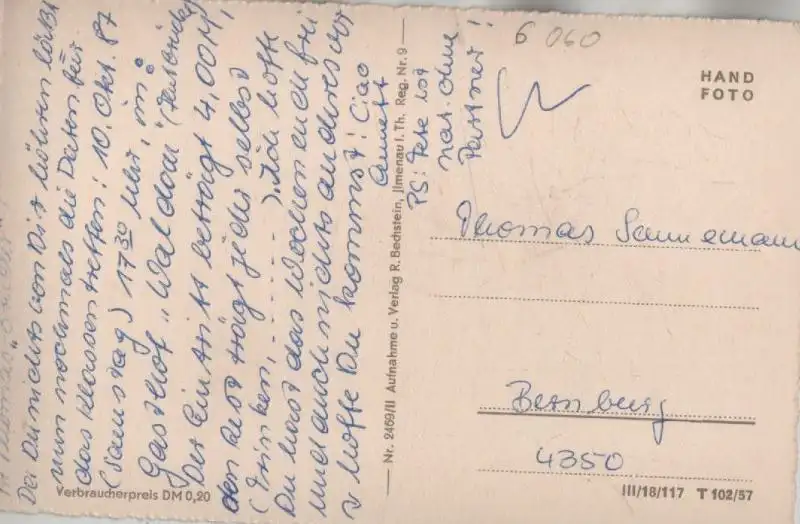 Da Du nichts von Dir hören läßt
nun nochmals die Daten für
das Klassentreffen: 10. Okt. 87
(Samstag) 17 30 Uhr, im
Gasthof „Waldow"
Der Eintritt beträgt 4,00 M,
den Rest trägt jeder selbst
(Trinken, ......). Ich hoffe
Du hast das Wochenende frei
und auch nichts anderes vor
Hoffe Du kommst! Ciao
Annett
PS: Fete ist
nat. ohne
Partner!
Verbraucherpreis DM 0,20
Nr. 2469/II Aufnahme u. Verlag R. Bechstein, Jlmenau i. Th. Reg. Nr. 9
6 060
HAND
FOTO
Thomas Sannemann
Bernburg
4350
III/18/117 T 102/57